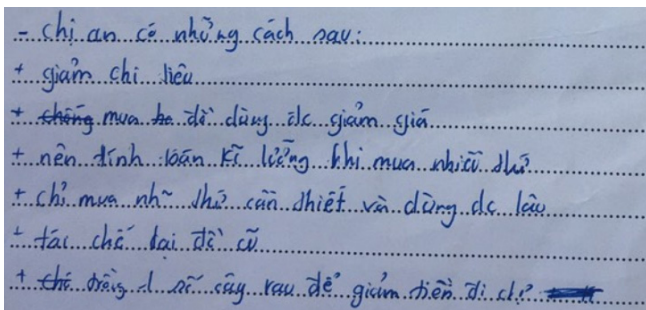 - chị an có những cách sau:
+ giảm chi tiêu
+ chống mua đồ dùng đc giảm giá
+ nên tính toán kĩ lưỡng khi mua nhiều thứ
+ chỉ mua nh~ thứ cần thiết và dùng đc lâu
+ tái chế lại đồ cũ
+ trồng 1 số cây rau để giảm tiền đi chợ